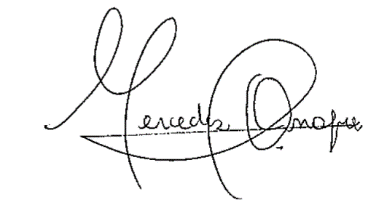 Mercedes Onofre